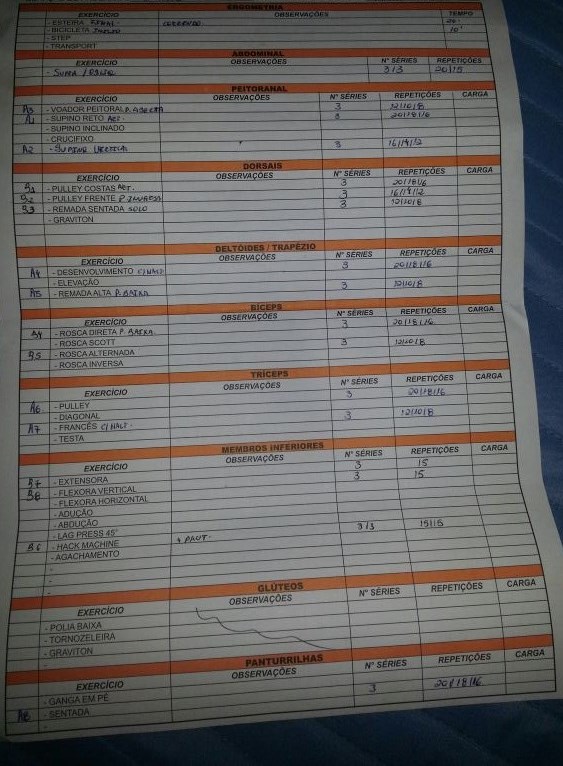 ERGOMETRIA
EXERCÍCIO OBSERVAÇÕES TEMPO
- ESTEIRA CORRENDO 20'
- BICICLETA 10'
- STEP
- TRANSPORT
ABDOMINAL
EXERCÍCIO OBSERVAÇÕES Nº SÉRIES REPETIÇÕES
- SUPRA / 3/3 20/15
PEITORANAL
EXERCÍCIO OBSERVAÇÕES Nº SÉRIES REPETIÇÕES CARGA
A3 - VOADOR PEITORAL P. ABERTA 3 12/10/8
A1 - SUPINO RETO ART. 3 20/18/16
- SUPINO INCLINADO
- CRUCIFIXO
A2 - SUPINO VERTICAL 3 16/14/12
DORSAIS
EXERCÍCIO OBSERVAÇÕES Nº SÉRIES REPETIÇÕES CARGA
B1 - PULLEY COSTAS ART. 3 20/18/16
B2 - PULLEY FRENTE P. INVERSA 3 16/14/12
B3 - REMADA SENTADA SOLO 3 12/10/8
- GRAVITON
DELTÓIDES / TRAPÉZIO
EXERCÍCIO OBSERVAÇÕES Nº SÉRIES REPETIÇÕES CARGA
A4 - DESENVOLVIMENTO C/HALT. 3 20/18/16
- ELEVAÇÃO
A5 - REMADA ALTA P. BAIXA 3 12/10/8
BÍCEPS
EXERCÍCIO OBSERVAÇÕES Nº SÉRIES REPETIÇÕES CARGA
B4 - ROSCA DIRETA P. BAIXA 3 20/18/16
- ROSCA SCOTT
B5 - ROSCA ALTERNADA 3 12/10/8
- ROSCA INVERSA
TRÍCEPS
EXERCÍCIO OBSERVAÇÕES Nº SÉRIES REPETIÇÕES CARGA
A6 - PULLEY 3 20/18/16
- DIAGONAL
A7 - FRANCÊS C/HALT. 3 12/10/8
- TESTA
MEMBROS INFERIORES
EXERCÍCIO OBSERVAÇÕES Nº SÉRIES REPETIÇÕES CARGA
B7 - EXTENSORA 3 15
B8 - FLEXORA VERTICAL 3 15
- FLEXORA HORIZONTAL
- ADUÇÃO
- ABDUÇÃO
- LAG PRESS 45°
B6 - HACK MACHINE + PANT. 3/3 15/15
- AGACHAMENTO
GLÚTEOS
EXERCÍCIO OBSERVAÇÕES Nº SÉRIES REPETIÇÕES CARGA
- POLIA BAIXA
- TORNOZELEIRA
- GRAVITON
PANTURRILHAS
EXERCÍCIO OBSERVAÇÕES Nº SÉRIES REPETIÇÕES CARGA
- GANGA EM PÉ
A8 - SENTADA 3 20/18/16